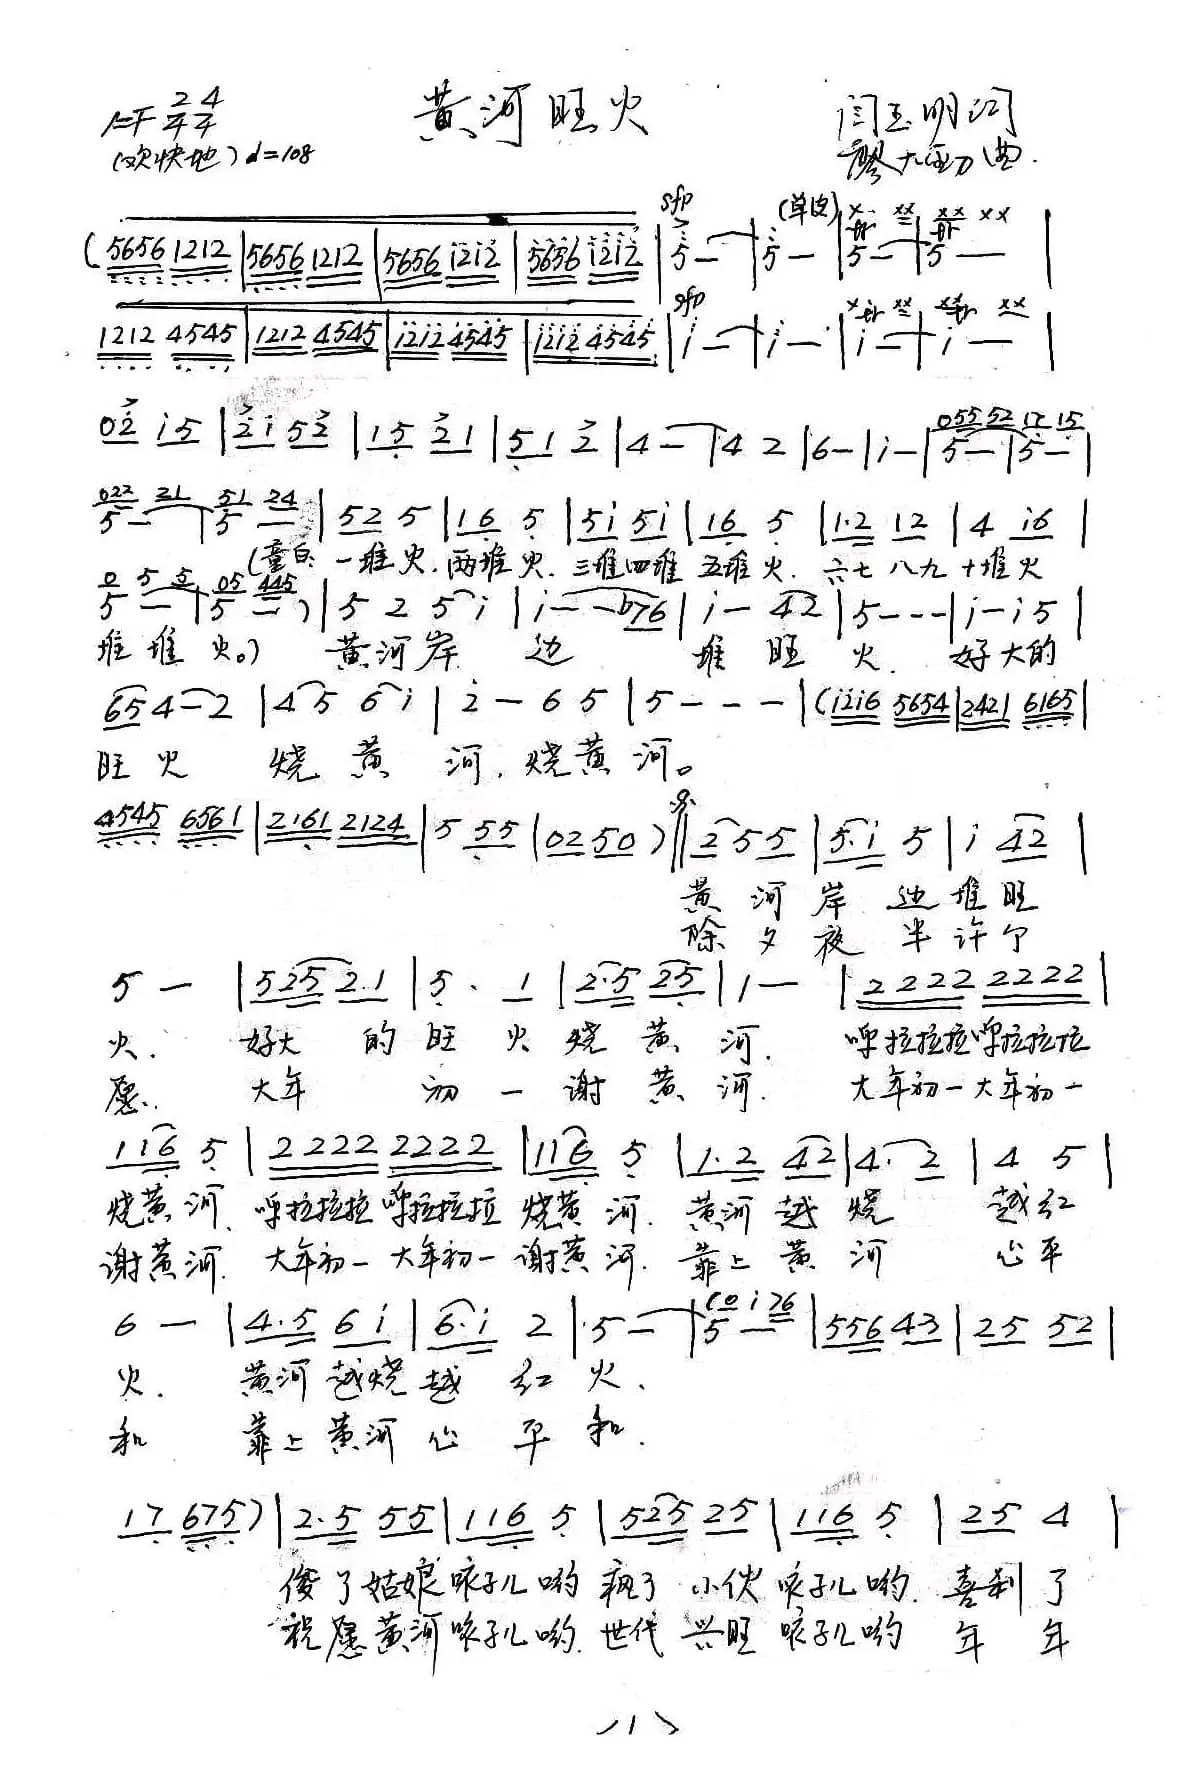 黄河旺火
1=F 2/4 4/4
闫玉明词
(欢快地) ♩=108
廖大勁曲.
sfp (单皮) x. xx xx xx
( 5656 1212 | 5656 1212 | 5656 i2i2 | 5656 i2i2 | 5 — | 5 — | 5 — | 5 — |
sfp
1212 4545 | 1212 4545 | i2i2 4545 | i2i2 4545 | i — | i — | i — | i — |
02 i5 | 2i 52 | 15 21 | 51 2 | 4 — | 4 2 | 6 — | i — | 5 — | 5 — |
022 21 51 24
5 — | 5 — | 52 5 | 16 5 | 5i 5i | 16 5 | 1·2 12 | 4 i6 |
(童白: 一堆火. 两堆火. 三堆四堆 五堆火. 六七八九十堆火
0 5 5 05 445
5 — | 5 — ) | 5 2 5 i | i — — 76 | i — 42 | 5 - - - | i — i 5 |
堆堆火。) 黄河岸边 堆旺火. 好大的
65 4 — 2 | 4 5 6 i | 2 — 6 5 | 5 - - - | (i2i6 5654 | 2421 6165 |
旺火 烧黄河, 烧黄河。
4545 6561 | 2161 2124 | 5 55 | 02 50 ) ‖ 2 5 5 | 5·i 5 | i 42 |
黄河岸边堆旺
除夕夜半许个
5 — | 525 2·1 | 5· 1 | 2·5 25 | 1 — | 2222 2222 |
火. 好大的旺火烧黄河. 呼拉拉拉呼拉拉拉
愿. 大年初一谢黄河. 大年初一大年初一
116 5 | 2222 2222 | 116 5 | 1·2 42 | 4· 2 | 4 5 |
烧黄河. 呼拉拉拉呼拉拉拉烧黄河. 黄河越烧越红
谢黄河. 大年初一大年初一谢黄河. 靠上黄河心平
6 — | 4·5 6i | 6·i 2 | 5 — | 5 — | 556 43 | 25 52 |
火. 黄河越烧越红火、
和 靠上黄河心平和.
17 675 ) | 2·5 55 | 116 5 | 525 25 | 116 5 | 25 4 |
俊了姑娘咳孑儿哟 疯了小伙咳孑儿哟. 喜刹了
祝愿黄河咳孑儿哟. 世代兴旺咳孑儿哟 年年
〈1〉